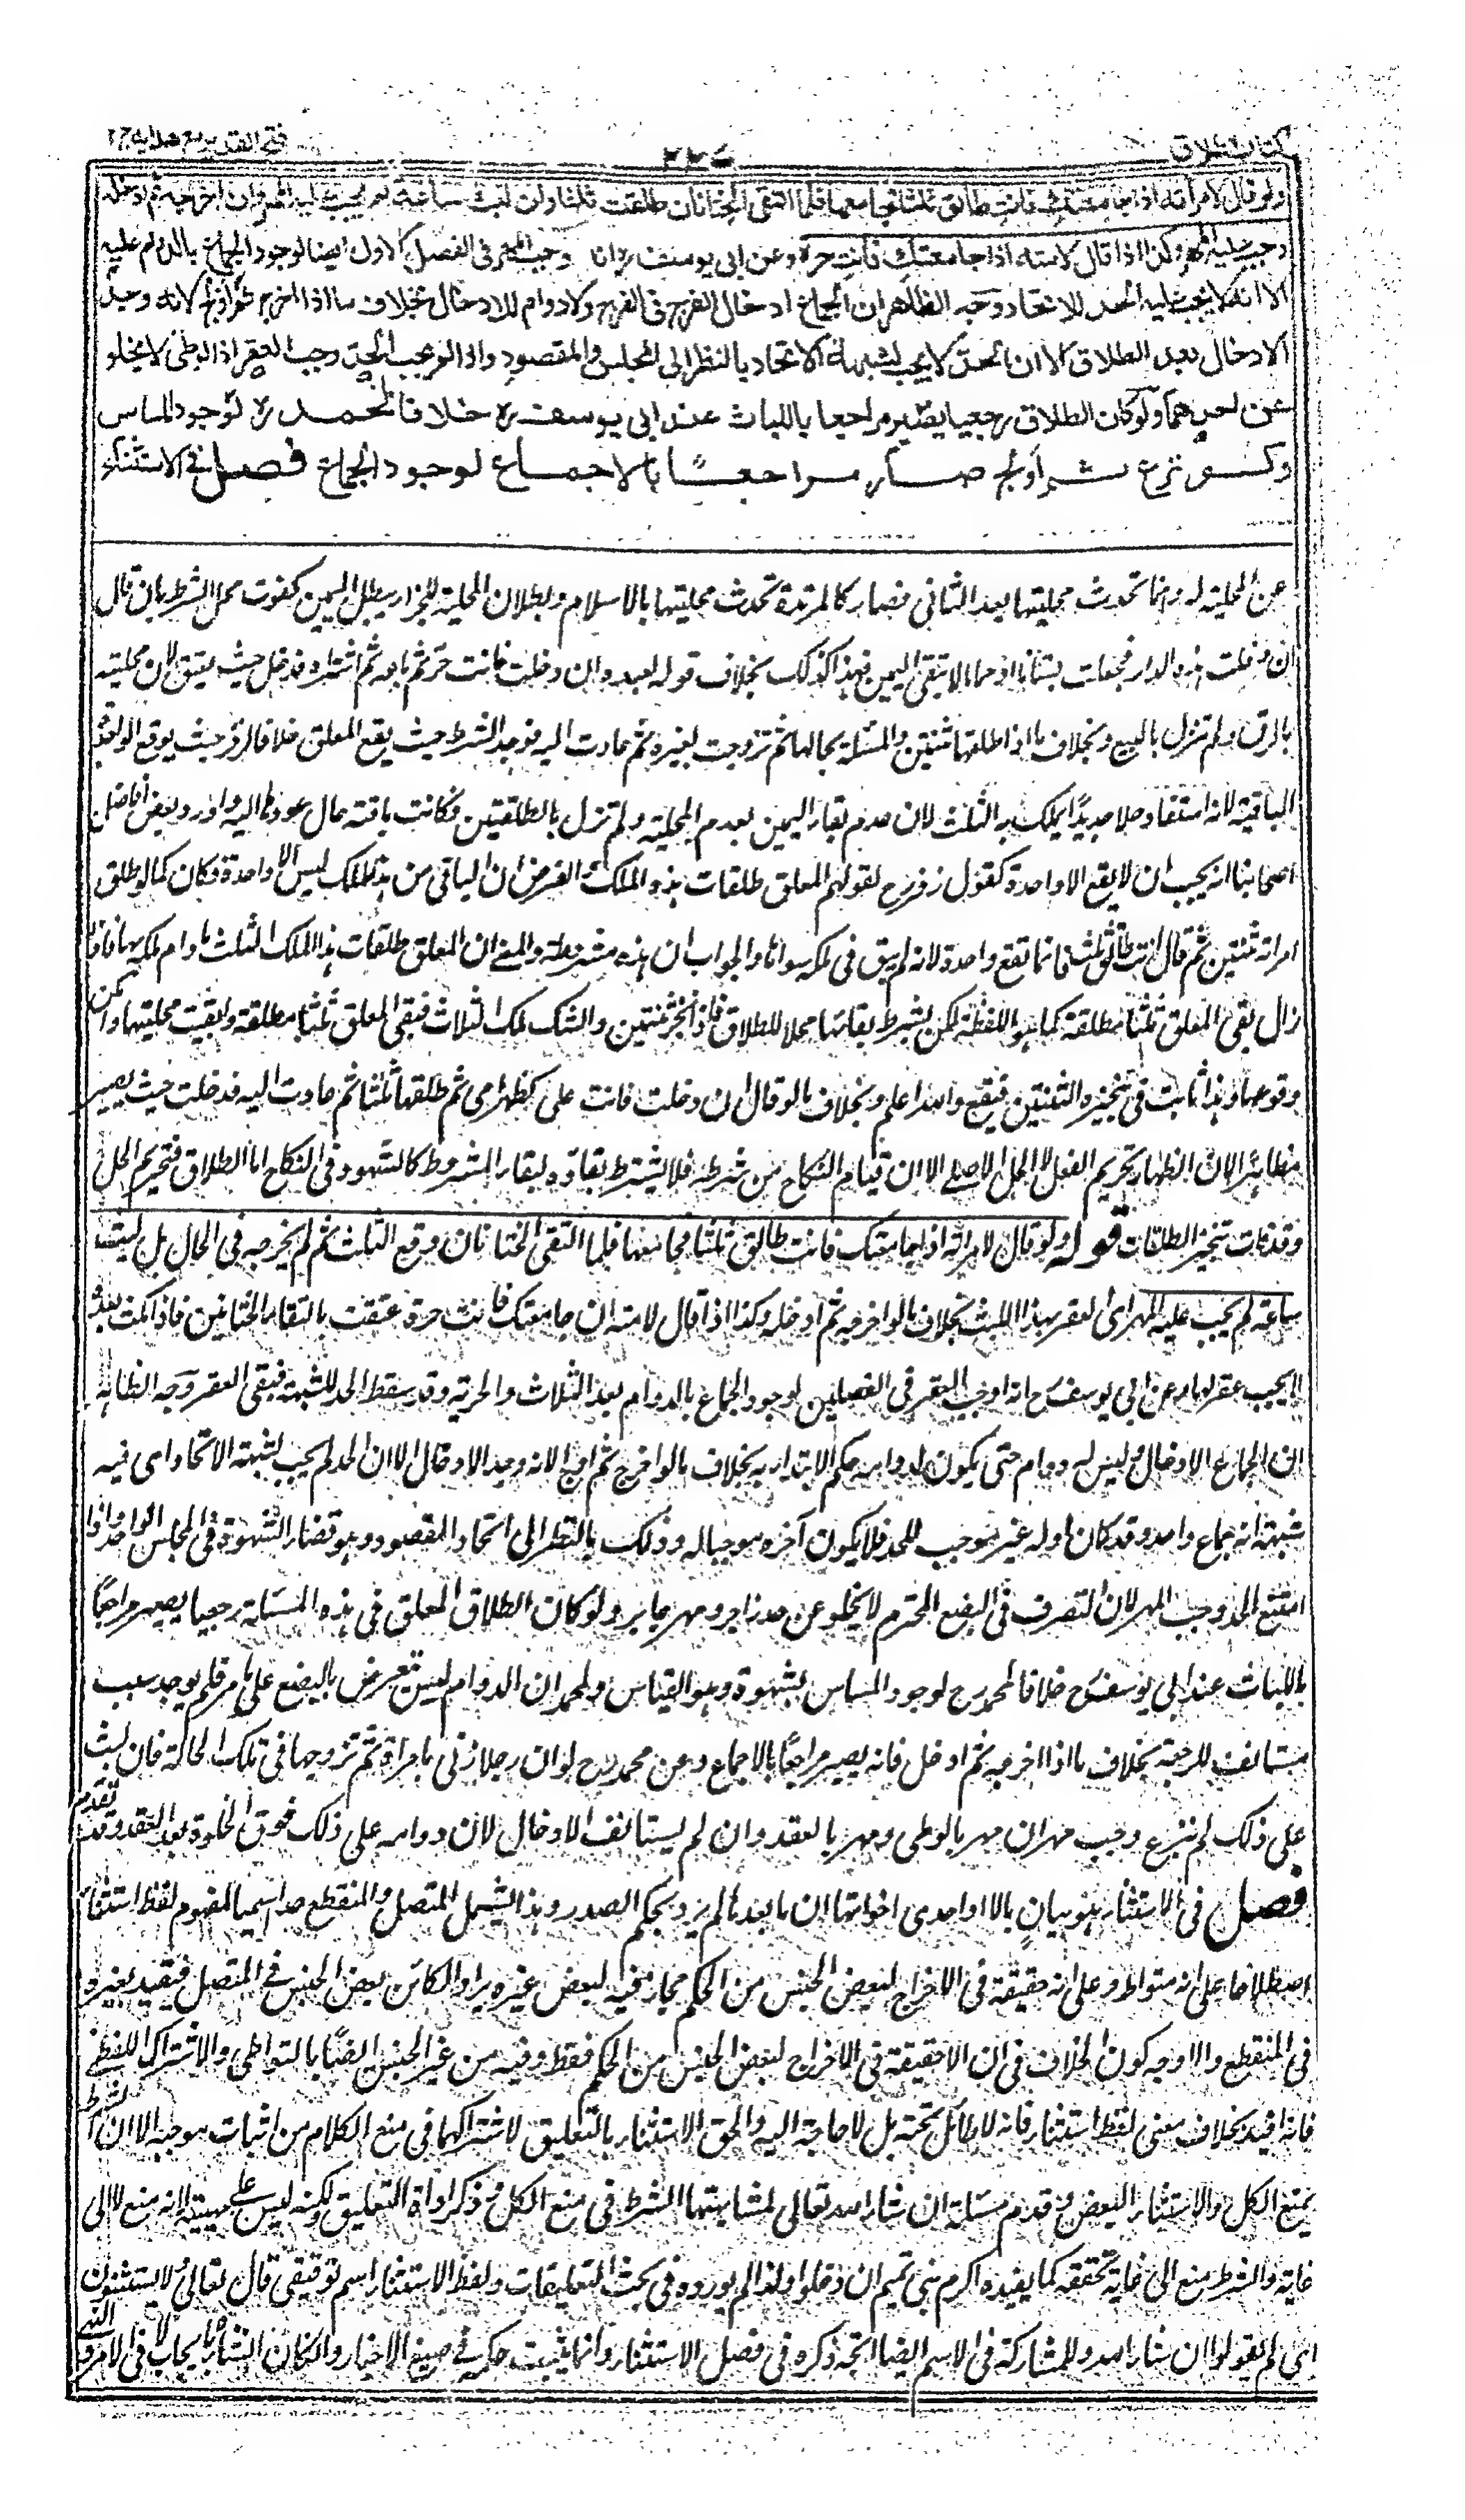 كتاب الطلاق
٢٢٤
فتح القدير مع هدايه ج٢
ولو قال لامرأته اذا جامعتك فانت طالق ثلثا فجامعها فلما التقى الختانان طلقت ثلثا وان لبث ساعة لم يجب عليه المهر وان اخرجه ثم ادخله
وجب عليه المهر وكذا اذا قال لامته اذا جامعتك فانت حرة وعن ابي يوسف رح انه وجب المهر في الفصل الاول ايضا لوجود الجماع بالدوام عليه
الا انه لا يجب عليه الحد للاتحاد وجه الظاهر ان الجماع ادخال الفرج في الفرج ولا دوام للادخال بخلاف ما اذا اخرج ثم اولج لانه وجد
الادخال بعد الطلاق الا ان الحد لا يجب لشبهة الاتحاد بالنظر الى المجلس والمقصود واذا لم يجب الحد وجب العقر اذ الوطى لا يخلو
عن احدهما ولو كان الطلاق رجعيا يصير مراجعا باللباث عند ابي يوسف رح خلافا لمحمد رح لوجود المساس
ولو نزع ثم اولج صار مراجعا بالاجماع لوجود الجماع فصل في الاستثناء
عن المحلية له وانما تحدث محليتها بعد الثاني فصار كالمرتدة تحدث محليتها بالاسلام وبطلان المحلية للجزاء يبطل اليمين كفوت محل الشرط بان قال
ان دخلت هذه الدار فجعلت بستانا او حماما لا يبقى اليمين فهذا كذلك بخلاف قوله لعبده ان دخلت فانت حر ثم باعه ثم اشتراه فدخل حيث يعتق لان محليته
بالرق ولم تزل بالبيع وبخلاف ما اذا طلقها ثنتين والمسئلة بحالها ثم تزوجت بغيره ثم عادت اليه فوجد الشرط حيث يقع المعلق خلافا لزفر حيث يوقع الواحدة
الباقية لانه استفاد حلا جديدا يملك به الثلث لان عدم بقاء اليمين بعدم المحلية ولم تزل بالطلقتين فكانت باقية حال عودها اليه واورد بعض افاضل
اصحابنا انه يجب ان لا يقع الا واحدة كقول زفر رح لقولهم المعلق طلقات هذه الملك والفرض ان الباقي من هذا الملك ليس الا واحدة فكان كما لو طلق
امرأته ثنتين ثم قال انت طالق ثلثا فانما تقع واحدة لانه لم يبق في ملكه سواها والجواب ان هذه مشروطة والمعنى ان المعلق طلقات هذا الملك الثلث ما دام ملكه لها فاذا
زال بقى المعلق ثلثا مطلقة كما هو اللفظ لكن بشرط بقائها محلا للطلاق فاذا نجز ثنتين زال ملك الثلاث فبقى المعلق ثلثا مطلقة وبقيت محليتها وامكن
وقوعها وهذا ثابت في تنجيزه الثنتين فيقع والله اعلم وبخلاف ما لو قال ان دخلت فانت على كظهر امى ثم طلقها ثلثا ثم عادت اليه فدخلت حيث يصير
مظاهرا لان الظهار تحريم الفعل لا الحل الاصلي الا ان قيام النكاح من شرطه فلا يشترط بقاؤه لبقاء المشروط كالشهود في النكاح اما الطلاق فتحريم الحل
وقد فات بتنجيز الطلقات قوله ولو قال لامرأته اذا جامعتك فانت طالق ثلثا فجامعها فلما التقى الختانان وقع الثلث ثم لم يخرجه في الحال بل لبث
ساعة لم يجب عليه المهر اى العقر بهذا اللبث بخلاف ما لو اخرجه ثم ادخله وكذا اذا قال لامته ان جامعتك فانت حرة عتقت بالتقاء الختانين فاذا مكث بعده
لا يجب عقر لها وعن ابي يوسف رح انه اوجب العقر في الفصلين لوجود الجماع بالدوام بعد الثلاث والحرية وقد سقط الحد للشبهة فبقى العقر وجه الظاهر
ان الجماع الادخال وليس له دوام حتى يكون لدوامه حكم الابتداء به بخلاف ما لو اخرج ثم اولج لانه وجد الادخال الا ان الحد لم يجب لشبهة الاتحاد اى فيه
شبهة انه جماع واحد وقد كان اوله غير موجب للحد فلا يكون آخره موجبا له وذلك بالنظر الى اتحاد المقصود وهو قضاء الشهوة في المجلس الواحد واذا
امتنع الحد وجب المهر لان التصرف في البضع المحترم لا يخلو عن حد زاجر ومهر جابر ولو كان الطلاق المعلق في هذه المسئلة رجعيا يصير مراجعا
باللباث عند ابي يوسف رح خلافا لمحمد رح لوجود المساس بشهوة وهو القياس ولمحمد ان الدوام ليس بتعرض بالبضع على ما مر فلم يوجد سبب
مستانف للرجعة بخلاف ما اذا اخرجه ثم ادخل فانه يصير مراجعا بالاجماع وعن محمد رح لو ان رجلا زنى بامرأة ثم تزوجها في تلك الحالة فان لبث
على ذلك لم ينزع وجب مهران مهر بالوطى ومهر بالعقد وان لم يستانف الادخال لان دوامه على ذلك فوق الخلوة بعد العقد وقد تقدم
فصل في الاستثناء هو بيان بالا او احدى اخواتها ان ما بعدها لم يرد بحكم الصدر وهذا يشمل المتصل والمنقطع حدا اسميا لمفهوم لفظ استثناء
اصطلاحا على انه متواط وعلى انه حقيقة في الاخراج لبعض الجنس من الحكم مجاز فيه لبعض غيره يراد الكائن بعض الجنس في المتصل فيقيد بغيره
في المنقطع والاوجه كون الخلاف في ان الا حقيقة في الاخراج لبعض الجنس من الحكم فقط وفيه من غير الجنس ايضا بالتواطى والاشتراك اللفظى
فانه افيد بخلاف معنى لفظ استثناء فانه لا طائل تحته بل لا حاجة اليه والحق الاستثناء بالتعليق لاشتراكهما في منع الكلام من اثبات موجبه الا ان الشرط
يمنع الكل والاستثناء البعض وقدم مسئلة ان شاء الله تعالى لمشابهتها الشرط في منع الكل وذكر اداة التعليق ولكنه ليس على مهيعه لانه منع لا الى
غاية والشرط منع الى غاية تحققه كما يفيده اكرم بني تميم ان دخلوا ولذا لم يورده في بحث التعليقات ولفظ الاستثناء اسم توقيفى قال تعالى لا يستثنون
اى لم يقولوا ان شاء الله وللمشاركة في الاسم ايضا اتجه ذكره في فصل الاستثناء وانما يثبت حكمه في صيغ الاخبار وان كان انشاء بايجاب لا في الامر والنهى